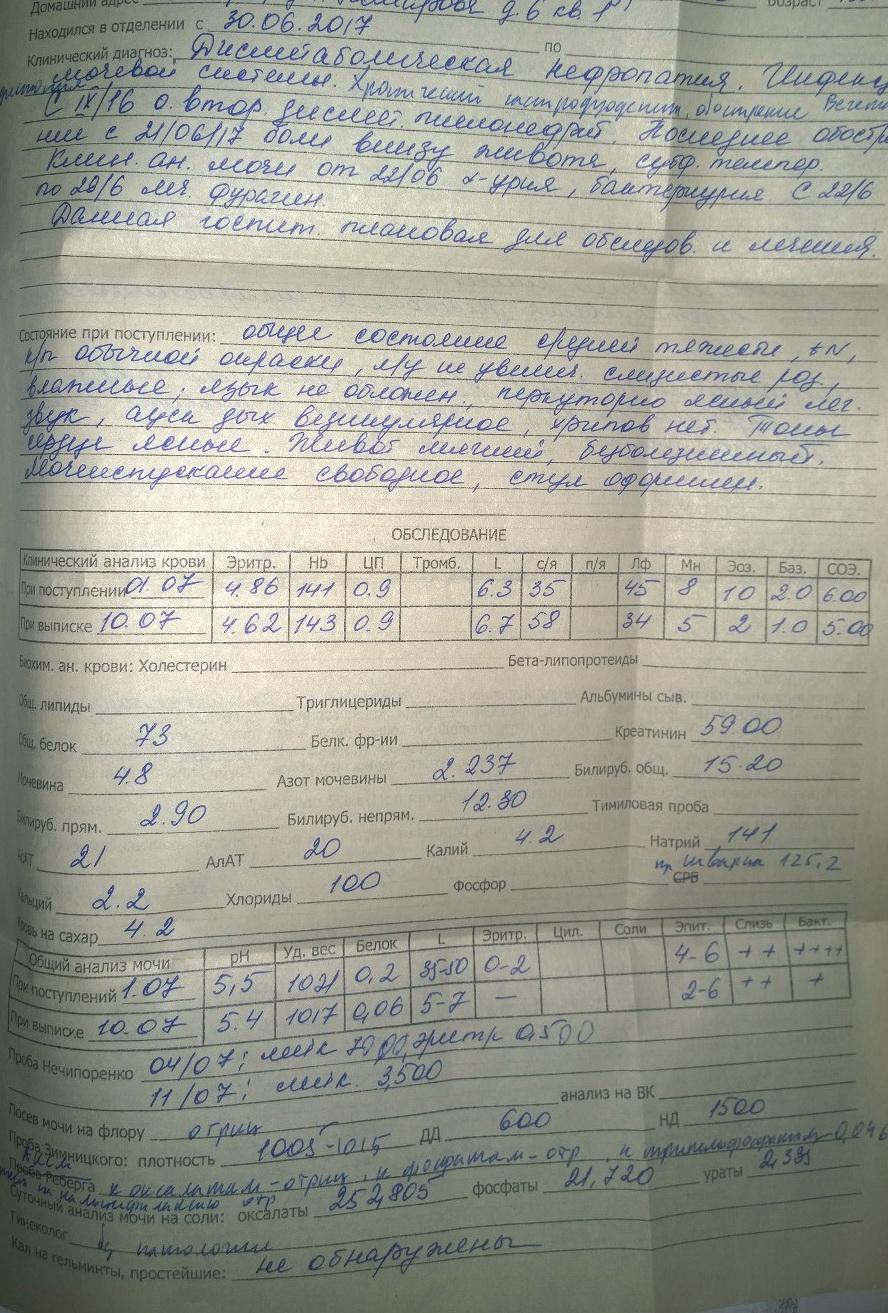 Домашний адрес д. 6 кв. 1 Возраст
Находился в отделении с 30.06.2017 по
Клинический диагноз: Дисметаболическая нефропатия. Инфекц
мочевой системы. Хронический гастродуоденит, обострение Вегета
С IX/16 о. втор. дисмет. пиелонефрит. Последнее обостре
ние с 21/06/17 боли внизу живота, субф. темпер.
Клин. ан. мочи от 22/06 α-урия, бактериурия С 22/6
по 29/6 леч. фурагин.
Данная госпит. плановая для обследов. и лечения.
Состояние при поступлении: общее состояние средней тяжести, tN,
к/п обычной окраски, л/у не увелич. слизистые роз,
влажные, язык не обложен, перкуторно ясный лег.
звук, ауск дых везикулярное, хрипов нет. Тоны
сердца ясные. Живот мягкий, безболезненный.
Мочеиспускание свободное, стул оформлен.
ОБСЛЕДОВАНИЕ
Клинический анализ крови Эритр. Hb ЦП Тромб. L с/я п/я Лф Мн Эоз. Баз. СОЭ.
При поступлении 01.07 4.86 141 0.9 6.3 35 45 8 10 2.0 6.00
При выписке 10.07 4.62 143 0.9 6.7 58 34 5 2 1.0 5.00
Биохим. ан. крови: Холестерин Бета-липопротеиды
Общ. липиды Триглицериды Альбумины сыв.
Общ. белок 73 Белк. фр-ии Креатинин 59.00
Мочевина 4.8 Азот мочевины 2.237 Билируб. общ. 15.20
Билируб. прям. 2.90 Билируб. непрям. 12.30 Тимиловая проба
АсАТ 21 АлАТ 20 Калий 4.2 Натрий 141
Кальций 2.2 Хлориды 100 Фосфор СРБ пр Шварца 125,2
Кровь на сахар 4.2
Общий анализ мочи pH Уд. вес Белок L Эритр. Цил. Соли Эпит. Слизь Бакт.
При поступлений 1.07 5,5 1021 0,2 35-50 0-2 4-6 ++ ++++
При выписке 10.07 5.4 1017 0,06 5-7 — 2-6 ++ +
Проба Нечипоренко 04/07; лейк эритр 0,500
11/07; лейк. 3,500 анализ на ВК
Посев мочи на флору отриц
Проба Зимницкого: плотность 1005-1015 ДД 600 НД 1500
Проба Реберга АКСМ к оксалатам-отриц, к фосфатам-отр, к трипельфосфатам-0,046
Суточный анализ мочи на соли: оксалаты 252,805 фосфаты 21,720 ураты 2,335
Гинеколог патологии
Кал на гельминты, простейшие: не обнаружены